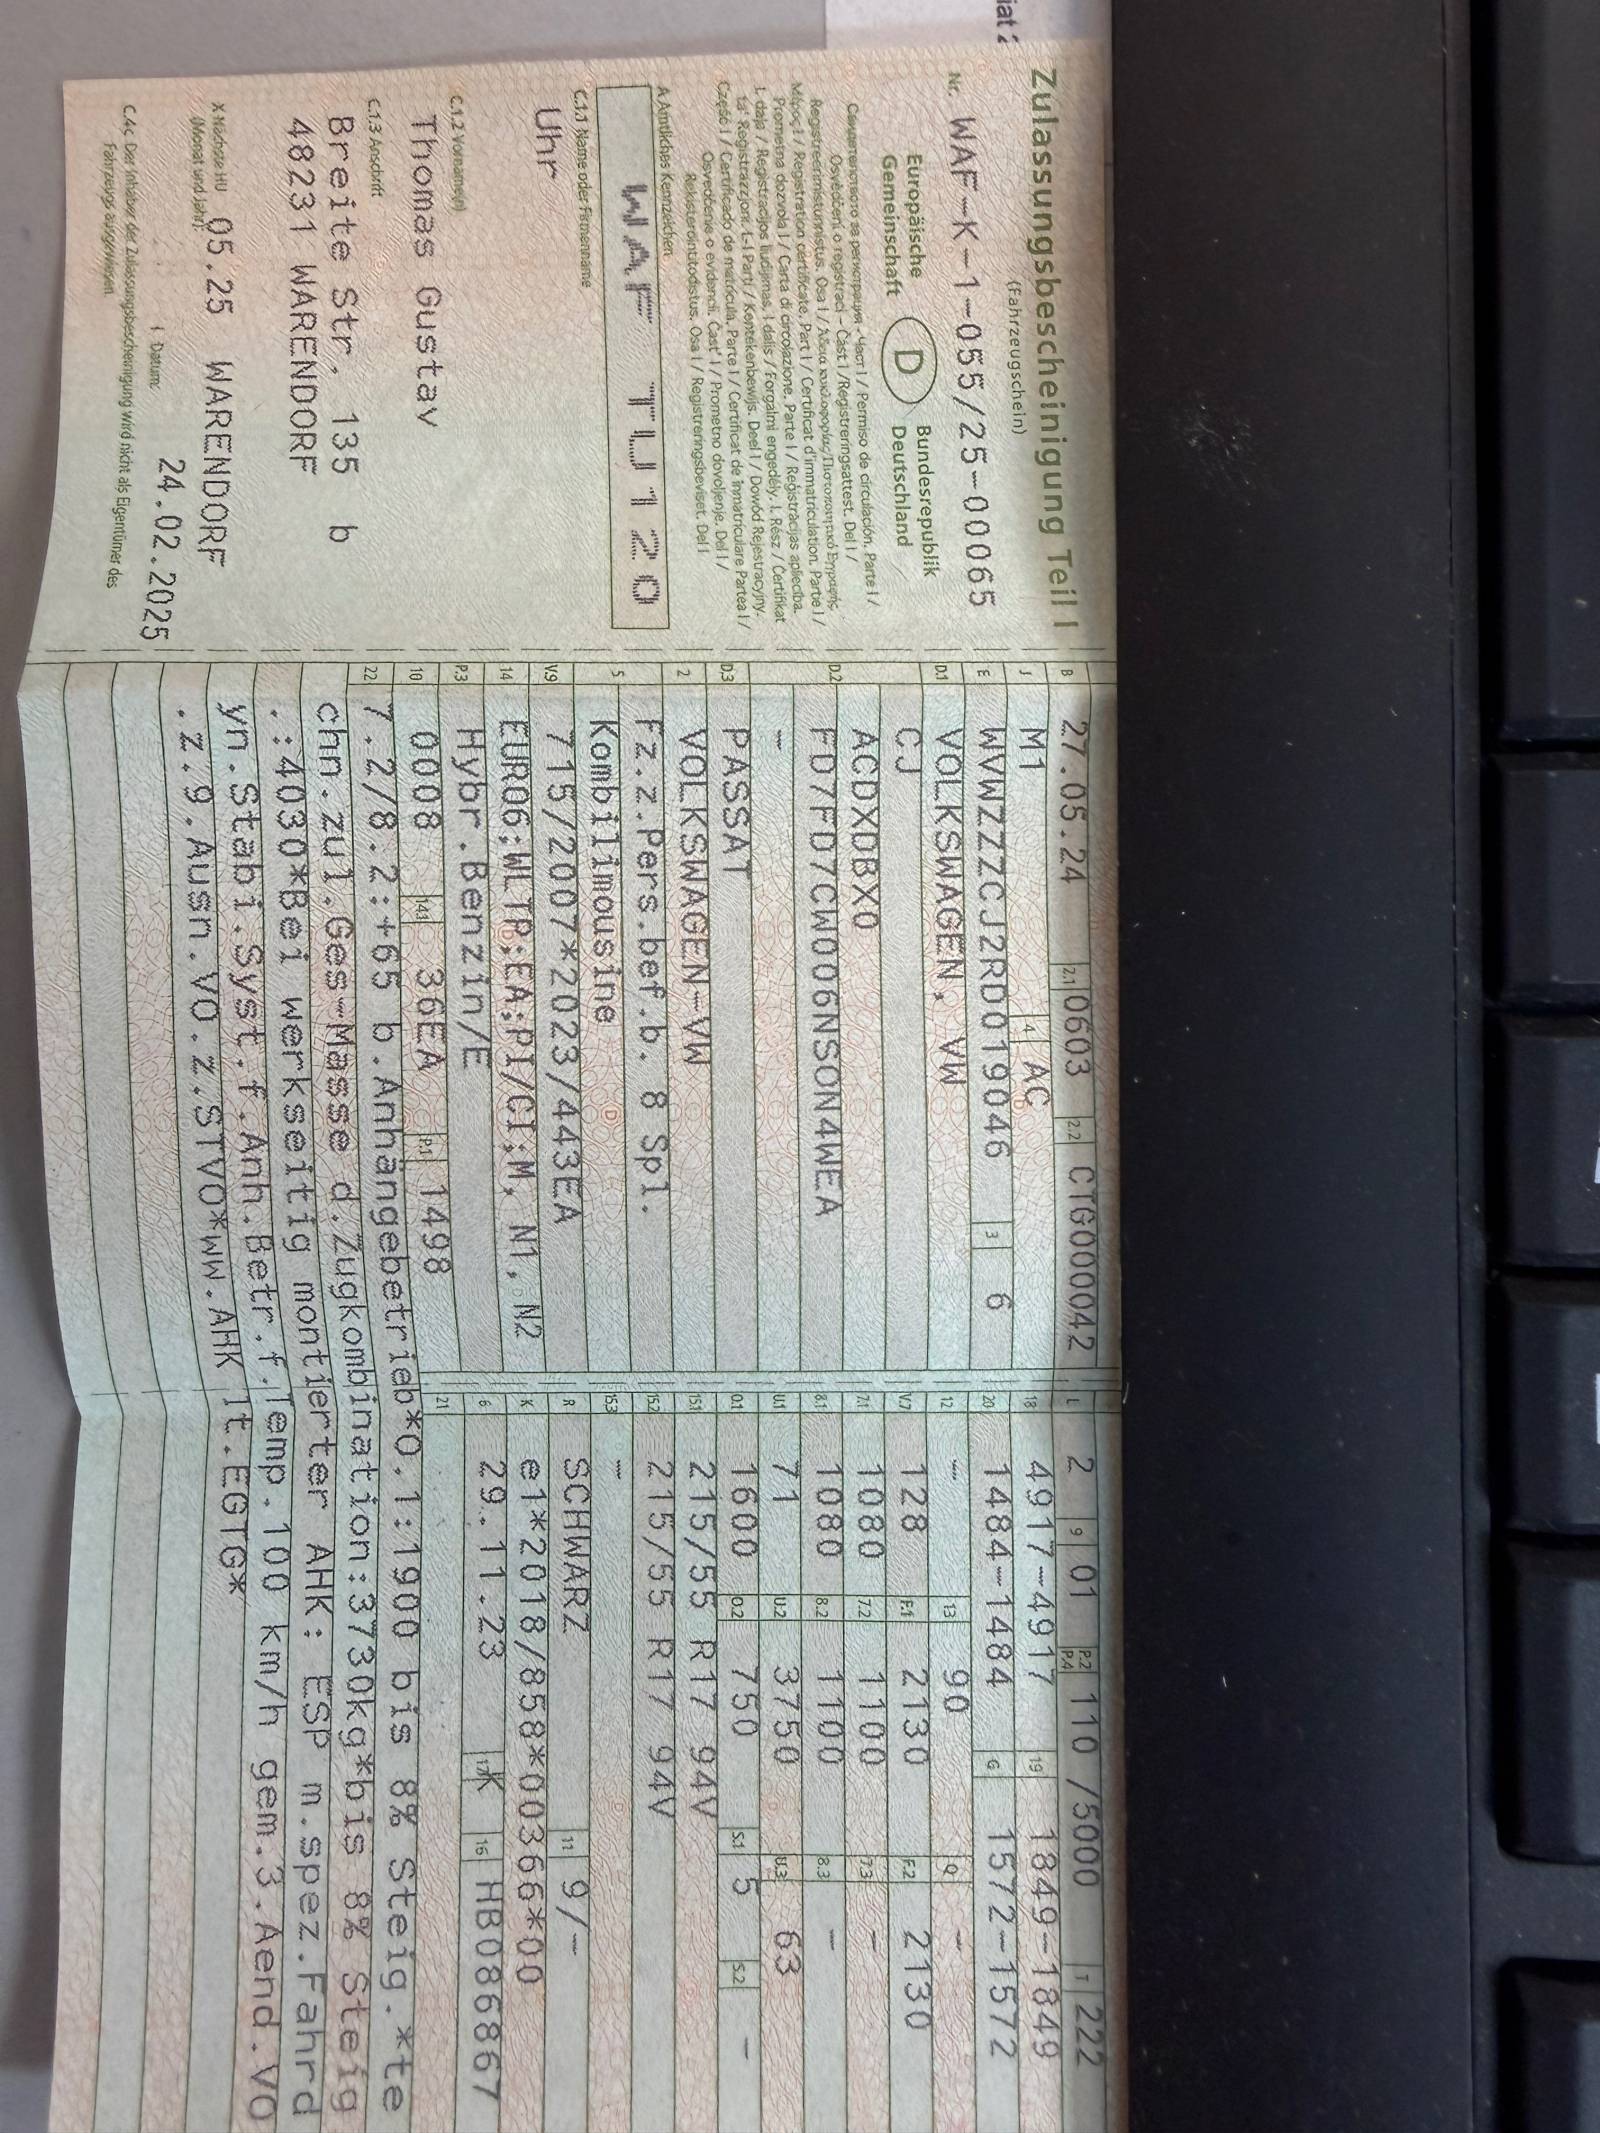 iat 2
Zulassungsbescheinigung Teil I
(Fahrzeugschein)
Nr. WAF-K-1-055/25-00065
Europäische Gemeinschaft D Bundesrepublik Deutschland
Свидетелство за регистрация - Част I / Permiso de circulación. Parte I /
Osvědčení o registraci - Část I / Registreringsattest. Del I /
Registreerimistunnistus. Osa I / Άδεια κυκλοφορίας/Πιστοποιητικό Εγγραφής.
Μέρος I / Registration certificate. Part I / Certificat d'immatriculation. Partie I /
Prometna dozvola I / Carta di circolazione. Parte I / Reģistrācijas apliecība.
I. daļa / Registracijos liudijimas. I dalis / Forgalmi engedély. I. Rész / Ċertifikat
ta' Reġistrazzjoni. L-I Parti / Kentekenbewijs. Deel I / Dowód Rejestracyjny.
Część I / Certificado de matrícula. Parte I / Certificat de înmatriculare Partea I /
Osvedčenie o evidencii. Časť I / Prometno dovoljenje. Del I /
Rekisteröintitodistus. Osa I / Registreringsbeviset. Del I
A Amtliches Kennzeichen
WAF TU120
C.1.1 Name oder Firmenname
Uhr
C.1.2 Vorname(n)
Thomas Gustav
C.1.3 Anschrift
Breite Str. 135 b
48231 WARENDORF
X Nächste HU (Monat und Jahr) 05.25 WARENDORF
I Datum: 24.02.2025
C.4c Der Inhaber der Zulassungsbescheinigung wird nicht als Eigentümer des
Fahrzeugs ausgewiesen.
B 27.05.24 2.1 0603 2.2 CTG000042
J M1 4 AC
E WVWZZZCJ2RD019046 3 6
D.1 VOLKSWAGEN, VW
CJ
D.2 ACDXDBX0
FD7FD7CW006NSON4WEA
-
D.3 PASSAT
2 VOLKSWAGEN-VW
Fz.z.Pers.bef.b. 8 Spl.
5 Kombilimousine
V.9 715/2007*2023/443EA
14 EURO6;WLTP;EA;PI/CI;M, N1, N2
P.3 Hybr.Benzin/E
10 0008 14.1 36EA P.1 1498
L 2 9 01 P.2 P.4 110 /5000 T 222
18 4917-4917 19 1849-1849
20 1484-1484 G 1572-1572
12 - 13 90 Q -
V.7 128 F.1 2130 F.2 2130
7.1 1080 7.2 1100 7.3 -
8.1 1080 8.2 1100 8.3 -
U.1 71 U.2 3750 U.3 63
O.1 1600 O.2 750 S.1 5 S.2 -
15.1 215/55 R17 94V
15.2 215/55 R17 94V
15.3 -
R SCHWARZ 11 9/-
K e1*2018/858*00366*00
6 29.11.23 17 K 16 HB086867
21
22 7.2/8.2:+65 b.Anhängebetrieb*O.1:1900 bis 8% Steig.*te
chn.zul.Ges-Masse d.Zugkombination:3730kg*bis 8% Steig
.:4030*Bei werkseitig montierter AHK: ESP m.spez.Fahrd
yn.Stabi.Syst.f.Anh.Betr.f.Temp.100 km/h gem.3.Aend.VO
.z.9.Ausn.VO.z.STVO*ww.AHK lt.EGTG*